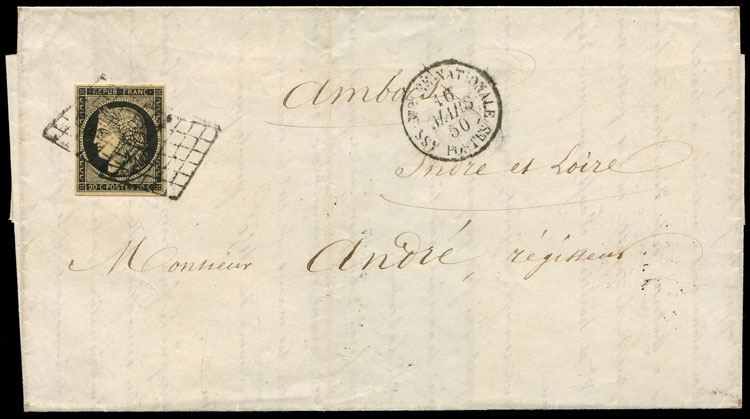 REPUB. FRANC.
20 C. POSTES 20 C.
ASSEMBLÉE-NATIONALE
16
MARS
50
POSTES
Amboise
Indre et Loire
Monsieur André, régisseur